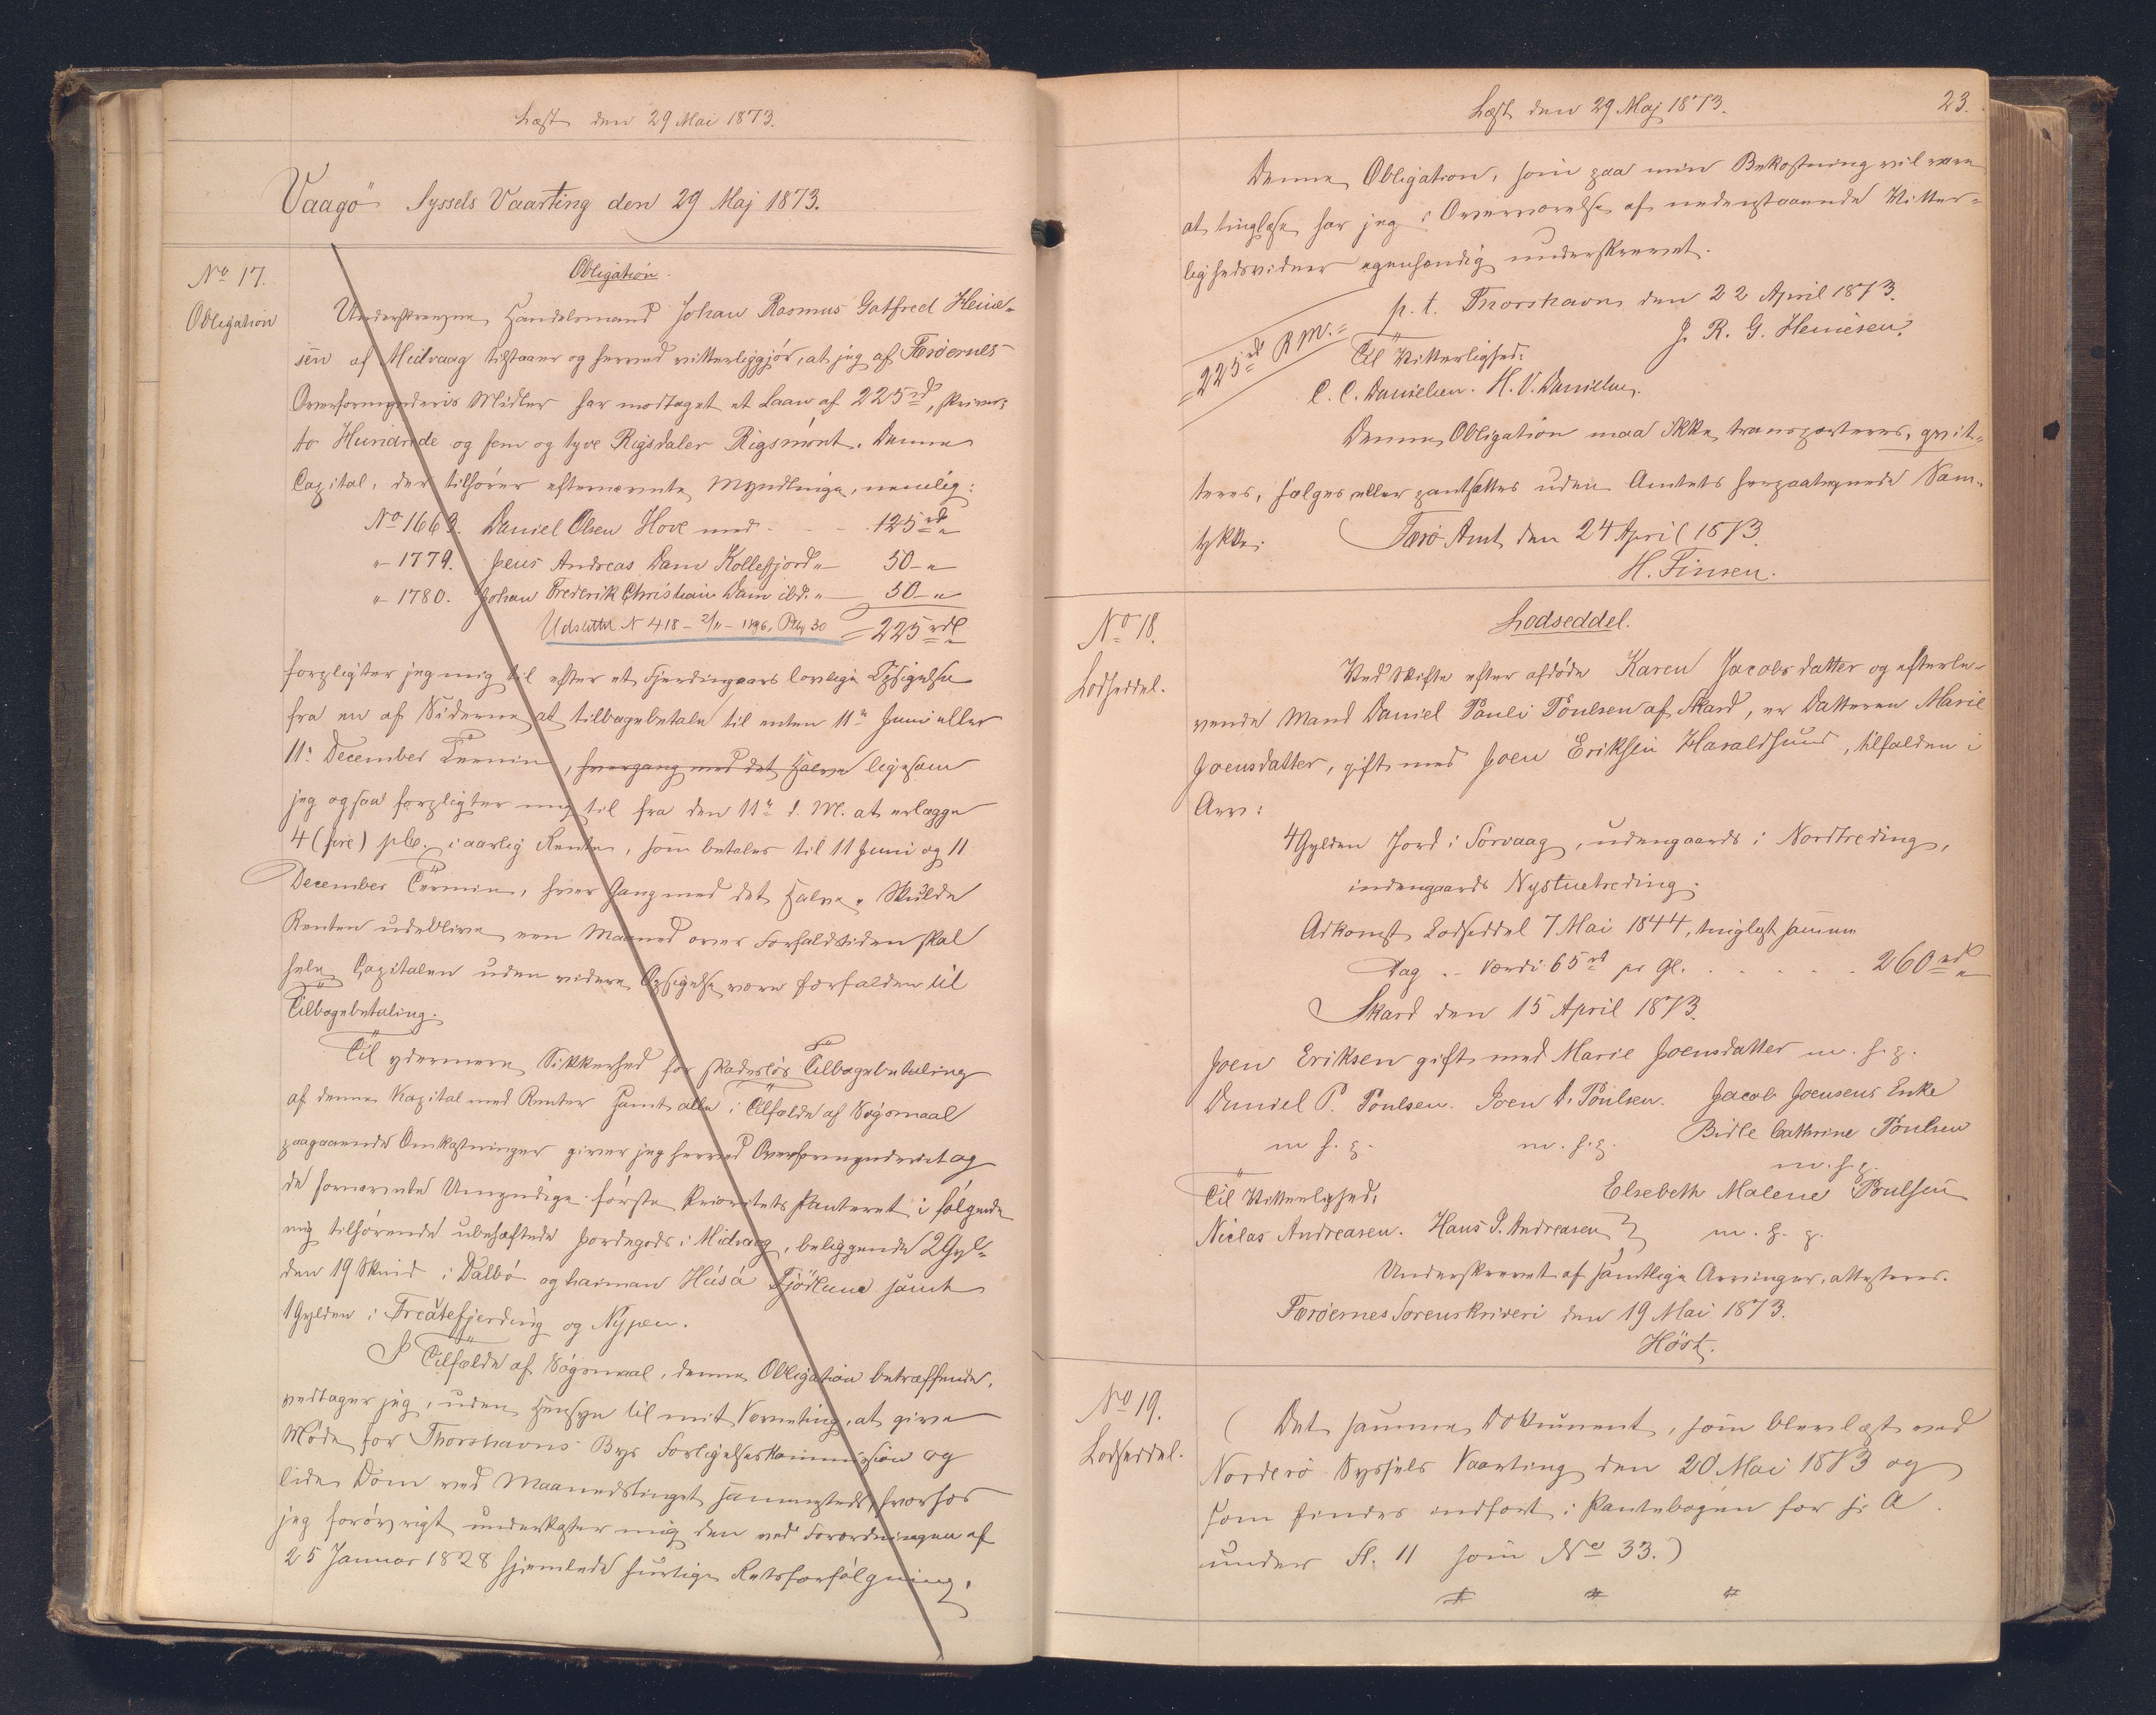 Læst den 29 Mai 1873.
Vaagö Syssels Vaarting den 29 Maj 1873.
No 17.
Obligation
Obligation.
Underskrevne Handelsmand Johan Rasmus Gotfred Heine-
sen af Midvaag tilstaaer og herved vitterliggjør, at jeg af Færøernes
Overformynderis Midler har modtaget et Laan af 225 rd, skriver:
to Hundrede og fem og tyve Rigsdaler Rigsmønt. Denne
Capital, der tilhører efternævnte Myndlinge, nemlig:
No 1663. Daniel Olsen Hove med - - - 125 rd "
" 1779. Jens Andreas Dam Kollefjord " — 50 - "
" 1780. Johan Frederik Christian Dam ibd. " — 50 - "
Udslettet N 418 - 2/11 - 1896, Pag 30 = 225 rdl "
forpligter jeg mig til efter et Fjerdingaars lovlige Opsigelse
fra en af Siderne at tilbagebetale til enten 11te Juni eller
11te December Termin, hvergang med det Halve ligesom
jeg ogsaa forpligter mig til fra den 11te d. M. at erlægge
4 (fire) pCt. i aarlig Rente, som betales til 11 Juni og 11
December Termin, hver Gang med det Halve. Skulde
Renten udeblive een Maaned over Forfaldstiden skal
hele Capitalen uden videre Opsigelse være forfalden til
Tilbagebetaling.
Til ydermere Sikkerhed for skadesløs Tilbagebetaling
af denne Kapital med Renter samt alle i Tilfælde af Søgsmaal
paagaaende Omkostninger giver jeg herved Overformynderiet og
de fornævnte Umyndige første Prioritets Panteret i følgende
mig tilhørende ubehæftede Jordegods i Midvaag, beliggende 2 Gyl-
den 19 Skind i Dalbö og haiman Húsá Fjödlune samt
1 Gylden i Treätefjerding og Nýpen.
I Tilfælde af Søgsmaal, denne Obligation betræffende,
vedtager jeg, uden Hensyn til mit Værneting, at give
Møde for Thorshavns Byes Forligelseskommission og
lide Dom ved Maanedstinget sammesteds, hvorhos
jeg forøvrigt underkaster mig den ved Forordningen af
25 Januar 1828 hjemlede hurtige Retsforfølgning.
Læst den 29 Maj 1873.
23.
Denne Obligation, som paa min Bekostning vil være
at tinglæse har jeg i Overværelse af nedenstaaende Vitter-
lighedsvidner egenhændig underskrevet.
p. t. Thorshavn den 22 April 1873.
= 225 rd RM. =
J. R. G. Heinesen.
Til Vitterlighed:
C. C. Danielsen. H. V. Danielsen.
Denne Obligation maa ikke transporteres, qvit-
teres, sælges eller pantsættes uden Amtets herpaategnede Sam-
tykke.
Færø Amt den 24 April 1873.
H. Finsen.
No 18.
Lodseddel.
Lodseddel.
Ved Skifte efter afdøde Karen Jacobsdatter og efterle-
vende Mand Daniel Pauli Poulsen af Skard, er Datteren Marie
Joensdatter, gift med Joen Eriksen Haraldsund, tilfalden i
Arv:
4 Gylden Jord i Sörvaag, udengaards i Nordtreding,
indengaards Nystuetreding.
Adkomst Lodseddel 7 Mai 1844, tinglæst samme
Dag. - Værdi 65 rd pr Gl. . . . . . 260 rd "
Skard den 15 April 1873.
Joen Eriksen gift med Marie Joensdatter m. f. p.
Daniel P. Poulsen. Joen D. Poulsen. Jacob Joensens Enke
m. f. p. m. f. p. Birte Cathrine Poulsen
m. f. p.
Til Vitterlighed: Elsebeth Malene Poulsen
Niclas Andreasen. Hans J. Andreasen } m. f. p.
Underskrevet af samtlige Arvinger, attesteres.
Færøernes Sorenskriveri den 19 Mai 1873.
Höst.
No 19.
Lodseddel.
( Det samme Dokument, som blev læst ved
Norderö Syssels Vaarting den 20 Mai 1873 og
som findes indført i Pantebogen for Js A.
under Fl. 11 som No 33.)